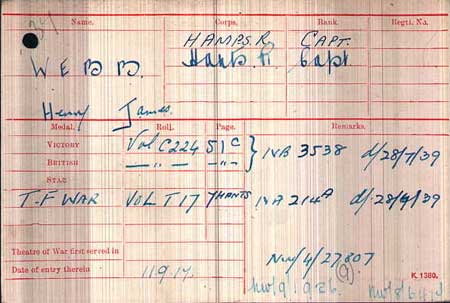 Name. Corps. Rank. Regtl. No.
HAMPS.R. CAPT.
WEBB. Hants R. Capt.
Henry James.
Medal. Roll. Page. Remarks.
VICTORY Vol C224 51C IVB 3538 d/28/7/39
BRITISH — " — " — "
STAR
T.F WAR VOL T17 7HANTS IVA 214A d/28/4/39
Theatre of War first served in
Date of entry therein 11.9.17. NW/4/27807
(9) K 1380.
NW/9